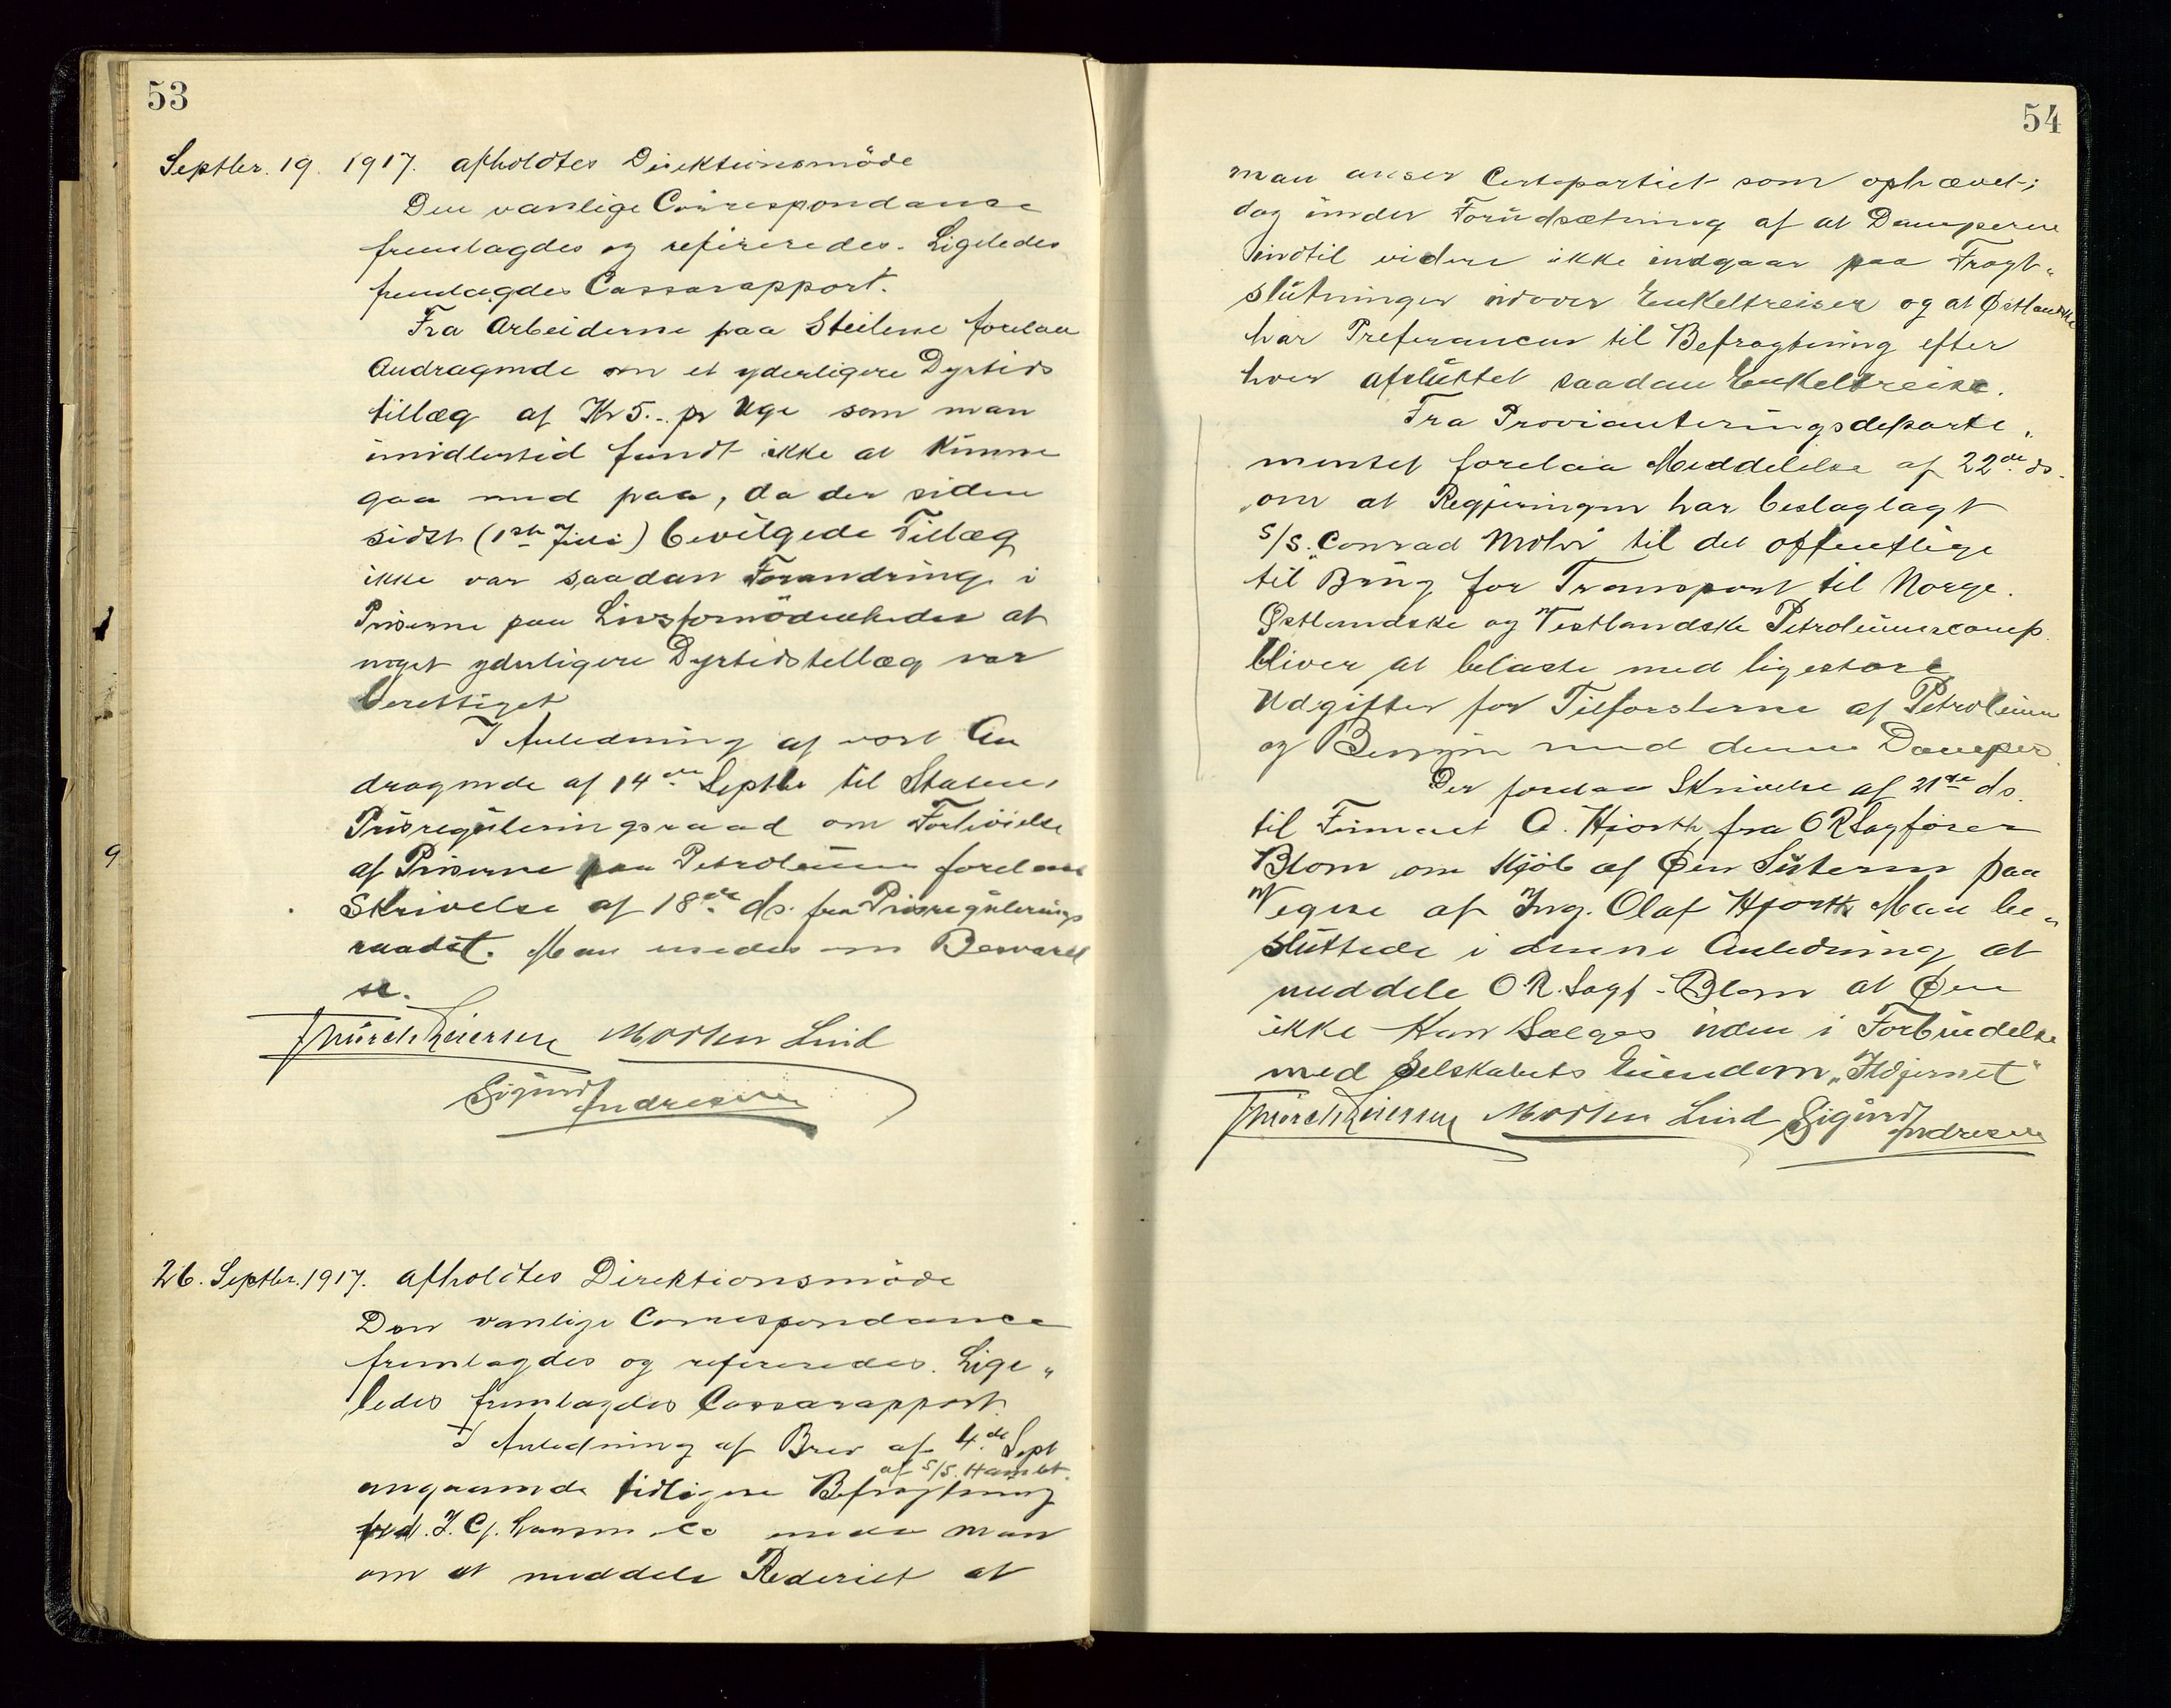 53
Septbr. 19. 1917. afholdtes Direktionsmöde
Den vanlige Correspondance
fremlagdes og refereredes. Ligeledes
fremlagdes Cassarapport.
Fra Arbeiderne paa Steilene forelaa
Andragende om et yderligere Dyrtids
tillæg af Kr 5.- pr Uge som man
imidlertid fandt ikke at kunne
gaa med paa, da der siden
sidst (1ste Juli) bevilgede Tillæg
ikke var saadan Forandring i
Priserne paa Livsfornödenheder at
noget yderligere Dyrtidstillæg var
berettiget
I Anledning af vort An
dragende af 14de Septbr til Statens
Prisreguleringsraad om Forhöielse
af Priserne paa Petroleum forelaa
Skrivelse af 18de ds. fra Prisregulerings
raadet. Man enedes om Besvarel
se.
Mörch Reiersen Morten Lind
Sigurd Andresen
26. Septbr. 1917. afholdtes Direktionsmöde
Den vanlige Correspondance
fremlagdes og refereredes. Lige„
ledes fremlagdes Cassarapport.
I Anledning af Brev af 4de Sept
af S/S. Hamlet.
angaaende tidligere Befragtning
fred. I. C. & Co enedes man
om at meddele Rederiet at
54
man anser Certepartiet som ophævet;
dog under Forudsætning af at Damperne
indtil videre ikke indgaar paa Fragt„
slutninger udover Enkeltreiser og at Østlandske
har Preferancen til Befragtning efter
hver afsluttet saadan Enkeltreise.
Fra Provianteringsdeparte„
mentet forelaa Meddelelse af 22de ds.
om at Regjeringen har beslaglagt
S/S. „Conrad Mohr" til det offentlige
til Brug for Transport til Norge.
Østlandske og Vestlandske Petroleumscomp.
bliver at belaste med ligestore
Udgifter for Tilförslerne af Petroleum
og Benzin med denne Damper.
Der forelaa Skrivelse af 21de ds.
til Firmaet O. Hjorth fra O R Sagförer
Blom om Kjöb af Øen Steilene paa
Vegne af Ing. Olaf Hjorth. Man be„
sluttede i denne Anledning at
meddele O R. Sagf. Blom at Øen
ikke kan Sælges uden i Forbindelse
med Selskabets Eiendom „Ildjernet"
Mörch Reiersen Morten Lind Sigurd
Andresen